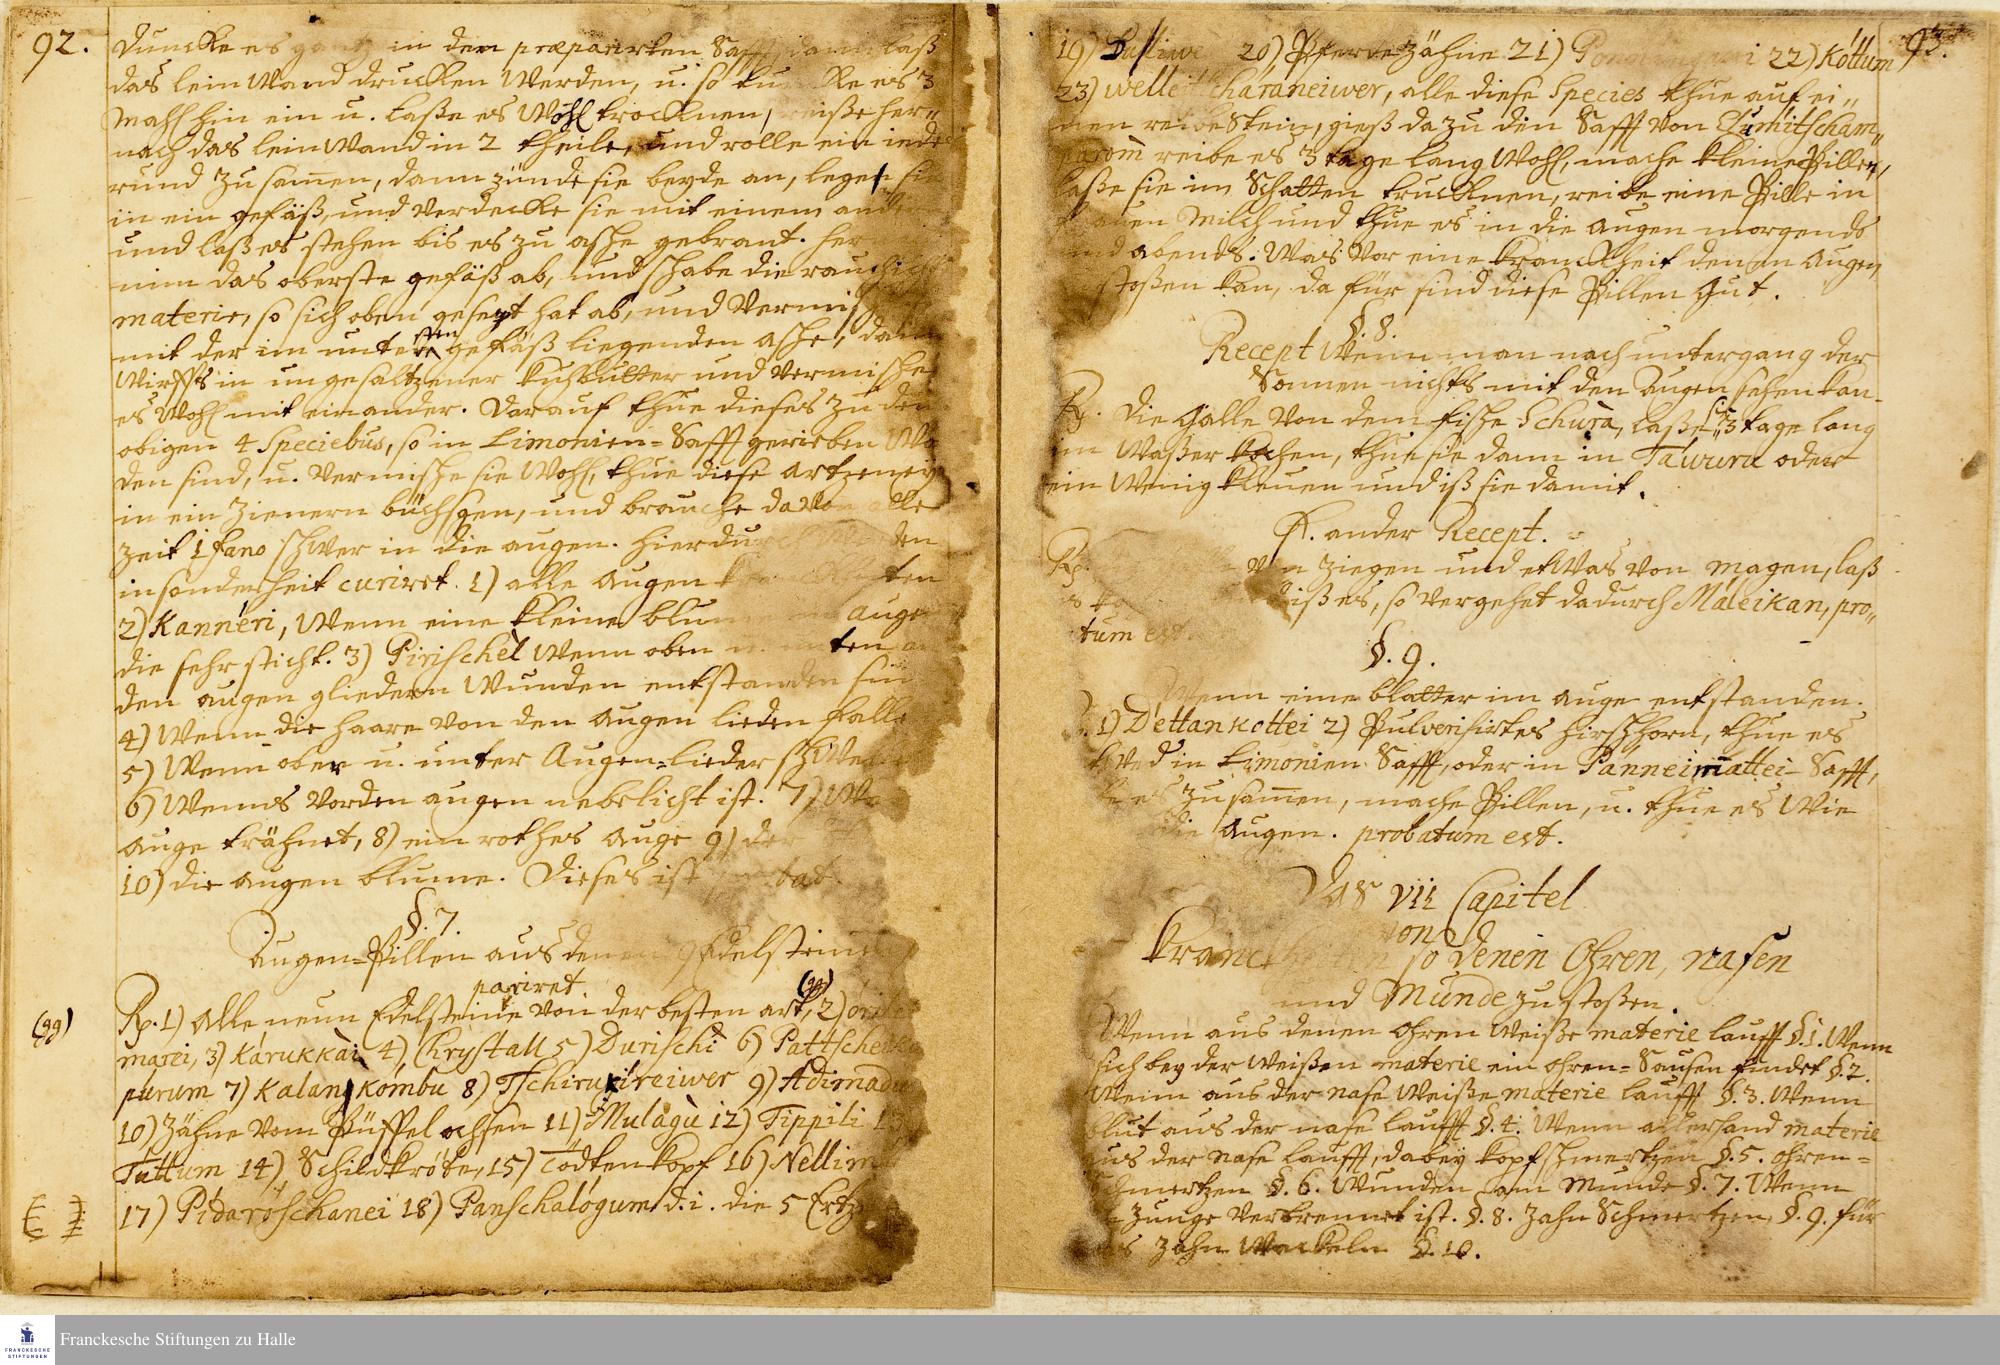 92.
Duncke es gantz in den præparirten Safft, dann laß
das leinWand drucken Werden, u. so tuncke es 3
mahl hinein u. laße es Wohl trocknen, reiße her„
nach das leinWand in 2 theile, und rolle ein iedes
rund zusam̅en, dann zünde sie beyde an, lege sie
in ein gefäß, und Verdecke sie mit einem andern
und laß es stehen bis es zu asche gebrant. her
nim das oberste gefäß ab, und schabe die rauchichte
materie, so sich oben gesetzt hat ab, und Vermische
mit der im untersten gefäß liegenden asche, dann
Wirffs in ungesaltzener Kuhbutter und Vermische
es Wohl mit einander. Darauf thue dieses zu den
obigen 4 Speciebus, so in Limonien-Safft gerieben Wor
den sind, u. Vermische sie Wohl, thue diese artzeney
in ein Zienern büchsgen, und brauche davon alle
Zeit 1 fano schwer in die augen. hierdurch werden
insonderheit curiret. 1) alle Augen kranckheiten
2) Kannéri, Wenn eine kleine blum im auge
die sehr sticht. 3) Pirischèl Wenn oben u. unten an
den augen gliedern Wunden entstanden sin
4) Wenn die haare Von den Augen lieden fallen
5) Wenn ober u. unter Augen-lieder schWe
6) Wenns Vor den augen nebelicht ist. 7) We
auge thränet, 8) ein rothes Auge 9) der
10) die augen blume. Dieses ist probat.
§. 7.
Augen-Pillen aus denen 9 Edelsteinen
pariret
(gg)
Rp. 1) Alle neun Edelsteine Von der besten art, (gg) 2)
marei, 3) Kárukkài 4) Chrystall 5) Durischi 6) Pattscheik
purum 7) Kalan kómbu 8) Tschirukireiwer 9) Adimadu
10) Zähne Vom Büffel ochsen 11) Mulágù 12) Tippili 13)
Tuttum 14) Schildkröte, 15) Todten kopf 16) Nellim
17) Pídaróschanei 18) Panschalógum d. i. die 5 Ertz
93.
19) 20) Pferde zähne 21) 22) Kóttum
23) welleitscháraneiwer, alle diese Species thue auf ei„
nen reibeStein, gieß dazu den Safft Von Elumitscham„
param̅ reibe es 3 tage lang Wohl, mache kleine Pillen,
laße sie im Schatten trucknen, reibe eine Pille in
frauen Milch und thue es in die Augen morgends
und abends. Was Vor eine Kranckheit denen Augen
stoßen kan, da für sind diese Pillen gut.
§. 8.
Recept Wenn man nach untergang der
Sonnen nichts mit den Augen sehen kan.
Rp. die Galle Von dem fische Schurà, laße sie 3 tage lang
im Waßer kochen, thue sie dann in Táwuru oder
ein Wenig kleuen und iß sie damit.
E. ander Recept.
Rp. Von Ziegen und etWas Von magen, laß
es ko iß es, so Vergehet dadurch Máleikan, pro„
tum est.
§. 9.
Wenn eine blatter im auge entstanden.
1) Dettankottei 2) Pulverisirtes hirschhorn, thue es
in Limonien Safft, oder in Panneimattei-Safft,
es zusam̅en, mache Pillen, u. thue es Wie
die Augen. probatum est.
Das VII Capitel
von
Kranckheiten so denen Ohren, Nasen
und Munde zustoßen.
Wenn aus denen ohren Weiße materie laufft §. 1. Wenn
sich bey der Weißen materie ein ohren-Sausen findet §. 2.
Wenn aus der nase Weiße materie laufft §. 3. Wenn
blut aus der nase laufft §. 4. Wenn allerhand materie
aus der nase laufft, dabey kopf schmertzen §. 5. ohren-
Schmertzen §. 6. Wunden am Munde §. 7. Wenn
Zunge Verbrennet ist. §. 8. Zahn Schmertzen §. 9. für
das Zahn Wackeln §. 10.
Franckesche Stiftungen zu Halle
FRANCKESCHE
STIFTUNGEN